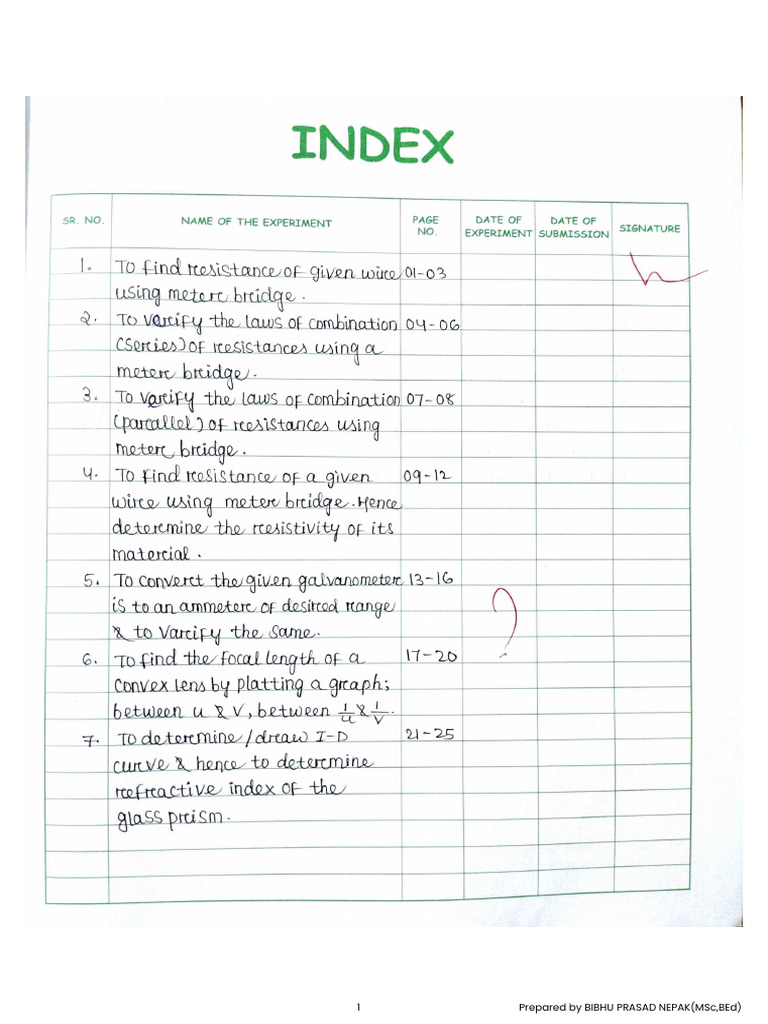 INDEX
SR. NO. NAME OF THE EXPERIMENT PAGE NO. DATE OF EXPERIMENT DATE OF SUBMISSION SIGNATURE
1. To find resistance of given wire 01-03
using meter bridge.
2. To verify the laws of combination 04-06
(Series) of resistances using a
meter bridge.
3. To verify the laws of combination 07-08
(parallel) of resistances using
meter bridge.
4. To find resistance of a given 09-12
wire using meter bridge. Hence
determine the resistivity of its
material.
5. To convert the given galvanometer 13-16
is to an ammeter of desired range
& to Varify the same.
?
6. To find the focal length of a 17-20
convex lens by platting a graph;
between u & v, between 1/u & 1/v.
7. To determine/draw I-D 21-25
curve & hence to determine
refractive index of the
glass prism.
1 Prepared by BIBHU PRASAD NEPAK(MSc,BEd)